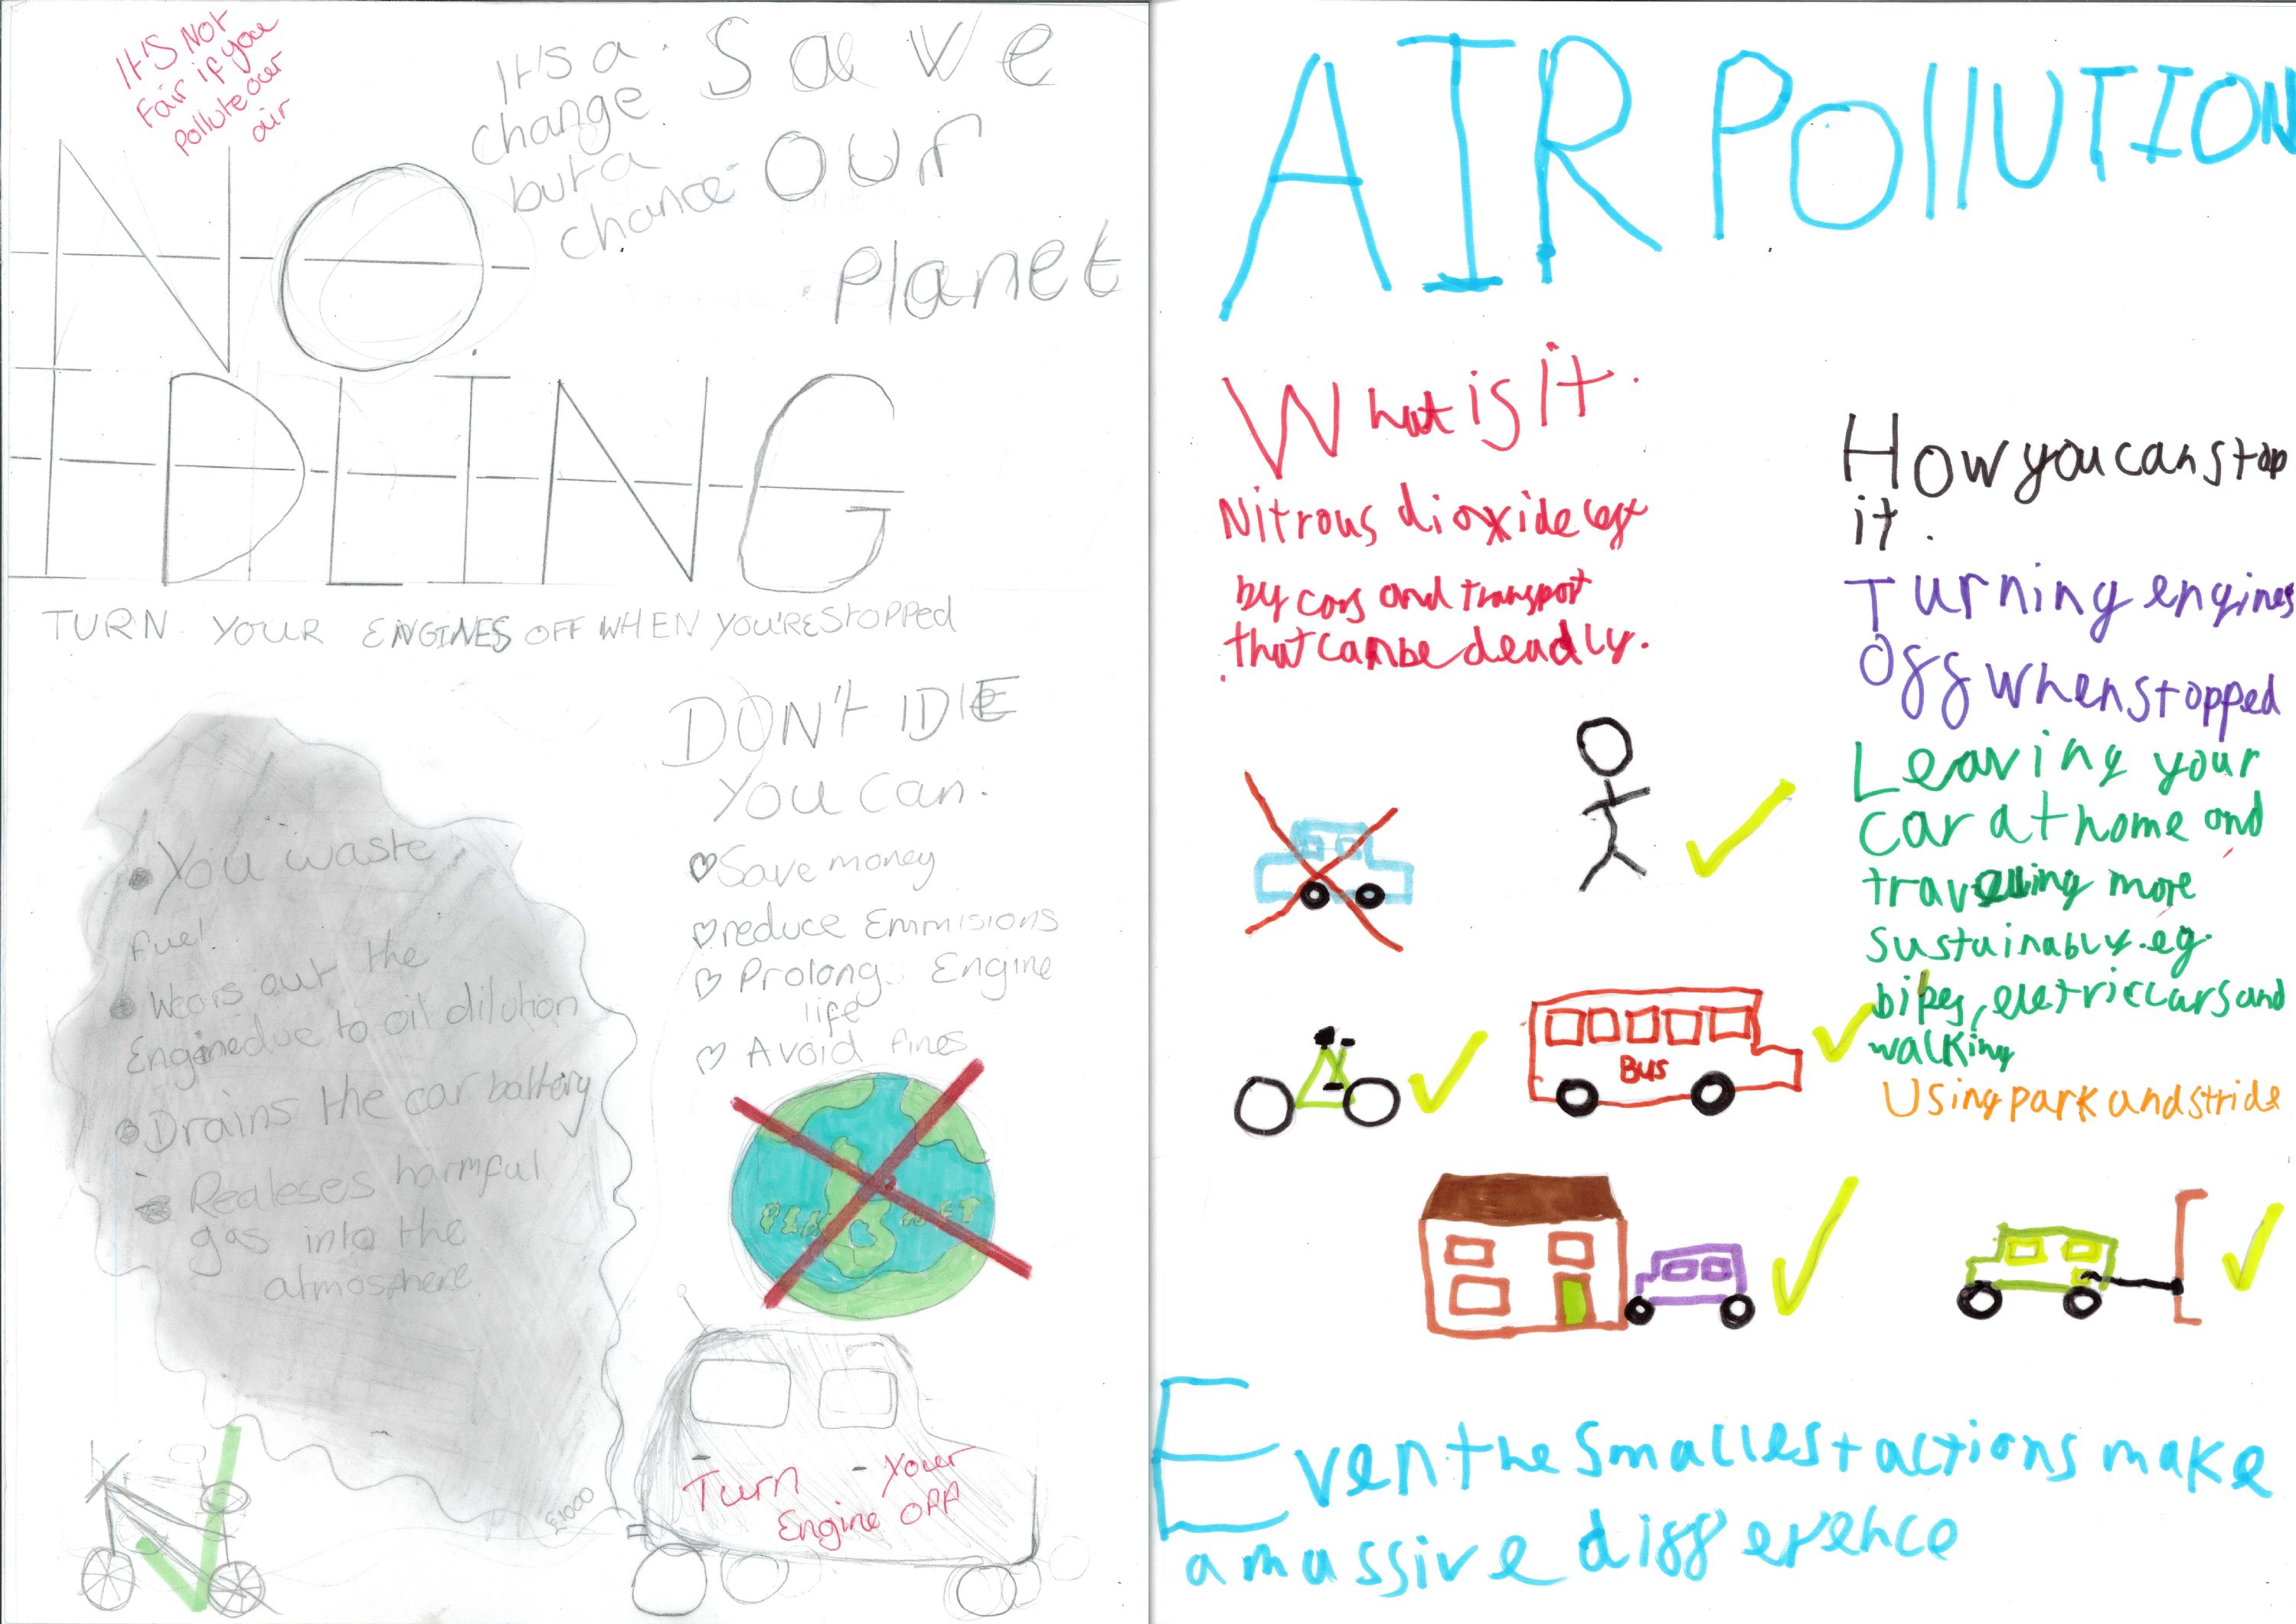 It's NOT
Fair if you
Pollute our
air
It's a
change
but a
chance
Save
Our
Planet
NO
IDLING
TURN YOUR ENGINES OFF WHEN YOU'RE STOPPED
• You waste
fuel
• Wears out the
Engine due to oil dilution
• Drains the car battery
• Realeses harmful
gas into the
atmosphere
DON'T IDLE
You can:
♡ Save money
♡ reduce Emmisions
♡ Prolong Engine
life
♡ Avoid fines
PLANET
B
£1000
Turn Your
Engine OFF
AIR POLLUTION
What is it
Nitrous dioxide left
by cars and transport
that can be deadly.
How you can stop
it.
Turning engines
off when stopped
Leaving your
car at home and
travelling more
sustainably. eg.
bikes, eletric cars and
walking
Using park and stride
BUS
Even the smallest actions make
a massive difference